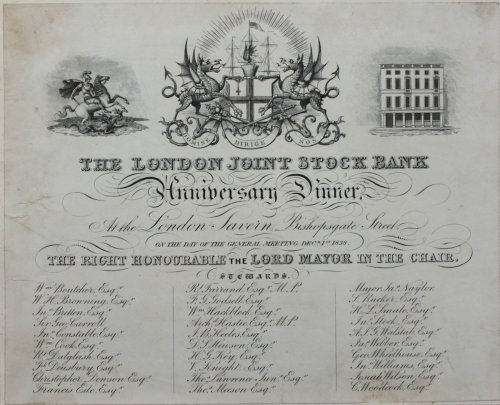 DOMINE DIRIGE NOS
THE LONDON JOINT STOCK BANK
Anniversary Dinner,
At the London Tavern, Bishopsgate Street.
ON THE DAY OF THE GENERAL MEETING DECR. 1ST 1838.
THE RIGHT HONOURABLE THE LORD MAYOR IN THE CHAIR.
STEWARDS.
Wm. Boulcher, Esqr.
W. H. Browning, Esqr.
Jno. Britten, Esqr.
Sir Geo. Carroll
Jno. Constable, Esqr.
Wm. Cook, Esqr.
Rt. Dalglish, Esqr.
Jph. Dewsbury, Esqr.
Christopher Denson Esqr.
Francis Ede, Esqr.
Rt. Farrand, Esqr. M.P.
F. G. Godsell Esqr.
Wm. Hackblock, Esqr.
Archd. Hastie, Esqr. M.P.
Esqr.
Esqr.
H. G. Key, Esqr.
V. Knight, Esqr.
Thos. Lawrence Junr. Esqr.
Thos. Meeson Esqr.
Major Jas. Naylor
S. Rucker, Esqr.
H. L. Smale, Esqr.
Jno. Stock, Esqr.
Esqr.
Jas. Webber, Esqr.
Geo. Wheelhouse, Esqr.
Jno. Williams, Esqr.
Josiah Wilson, Esqr.
C. Woodcock, Esqr.